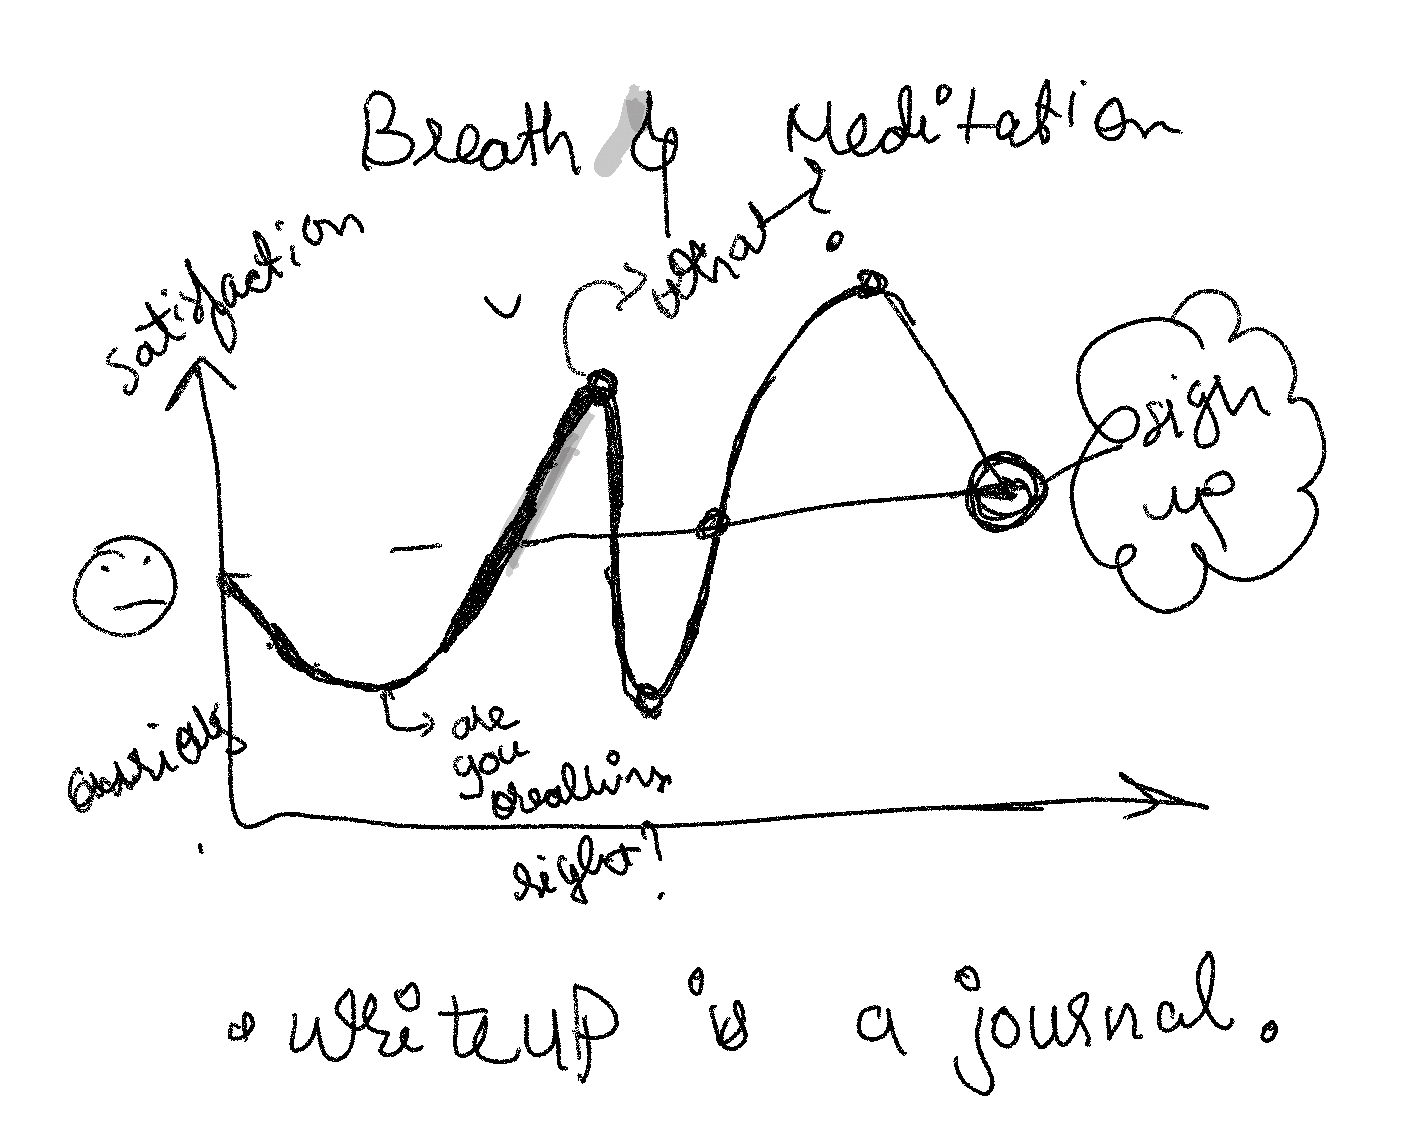 Breath & Meditation
Satisfaction
what ?
sign
up
are
you
right?
• writeup is a journal.